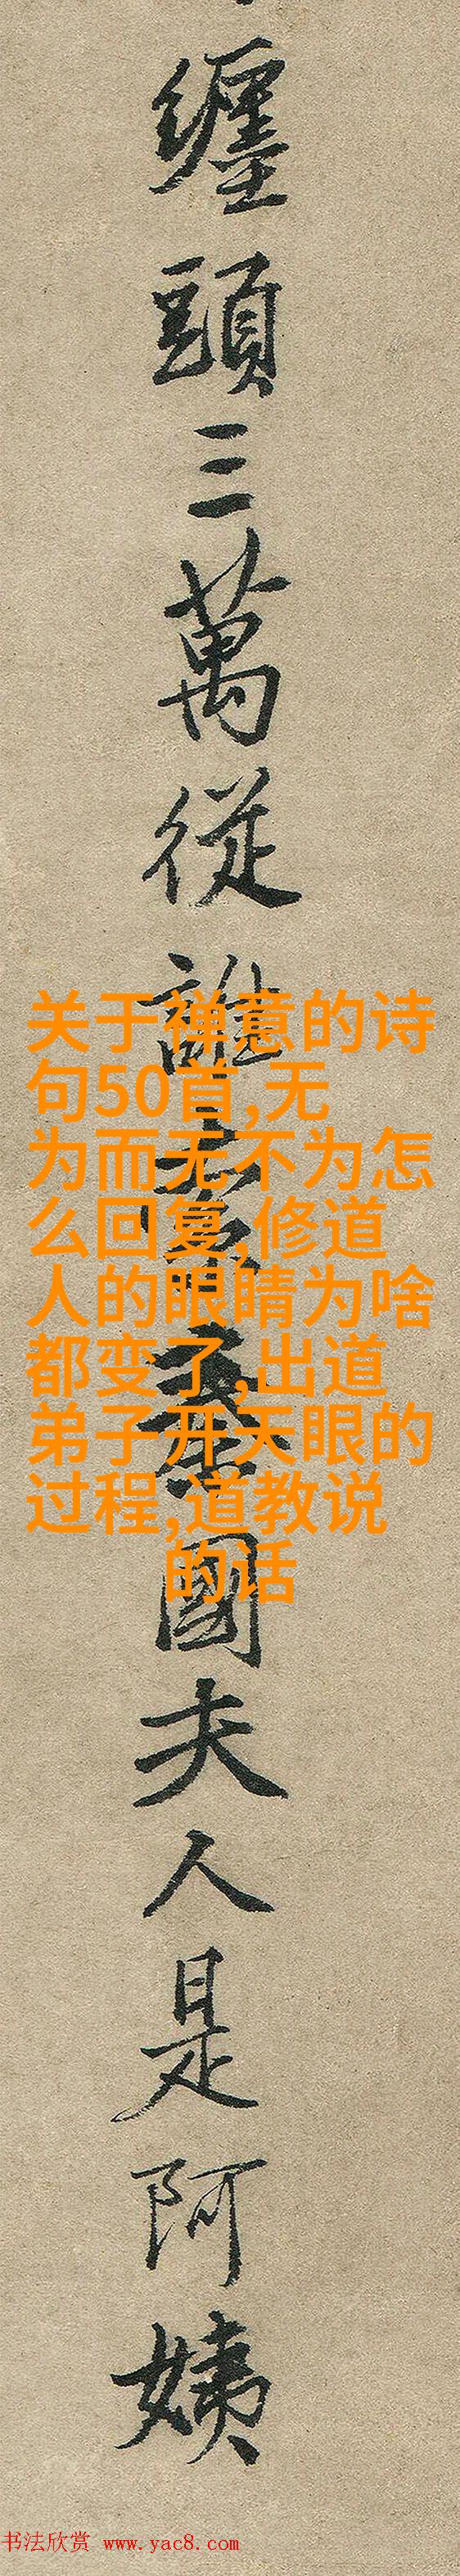 纏頭三萬從誰索秦國夫人是阿姨
关于禅意的诗
句50首,无
为而无不为怎
么回复,修道
人的眼睛为啥
都变了,出道
弟子开天眼的
过程,道教说
的话
书法欣赏 www.yac8.com